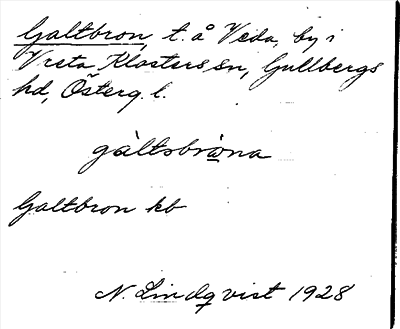 Galtbron, t. å Veda, by i
Vreta Klosters sn, Gullbergs
hd, Österg. l.
gàltsbrὼna
Galtbron kb
N. Lindqvist 1928